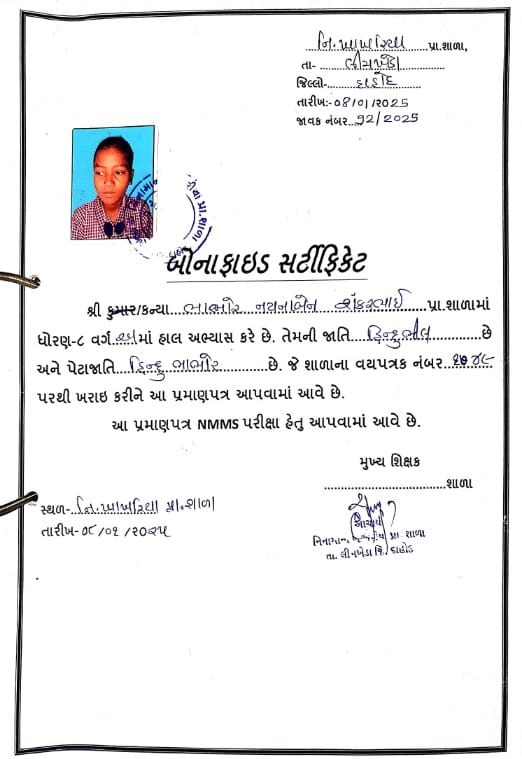 નિ.ખાખરિયા પ્રા.શાળા,
તા- લીમખેડા
જિલ્લો- દાહોદ
તારીખ:- 08/01/2025
જાવક નંબર...92/2025
બોનાફાઇડ સર્ટીફિકેટ
શ્રી કુમાર/કન્યા ભાભોર નયનાબેન શંકરભાઈ પ્રા.શાળામાં
ધોરણ-૮ વર્ગ અ માં હાલ અભ્યાસ કરે છે. તેમની જાતિ હિન્દુ ભીલ છે
અને પેટાજાતિ હિન્દુ ભાભોર છે. જે શાળાના વયપત્રક નંબર
પરથી ખરાઇ કરીને આ પ્રમાણપત્ર આપવામાં આવે છે.
આ પ્રમાણપત્ર NMMS પરીક્ષા હેતુ આપવામાં આવે છે.
મુખ્ય શિક્ષક
શાળા
સ્થળ- નિ.ખાખરિયા પ્રા.શાળા
તારીખ- ૦૮/૦૧/૨૦૨૫
આચાર્ય
પ્રા. શાળા
તા. લીમખેડા જિ. દાહોદ